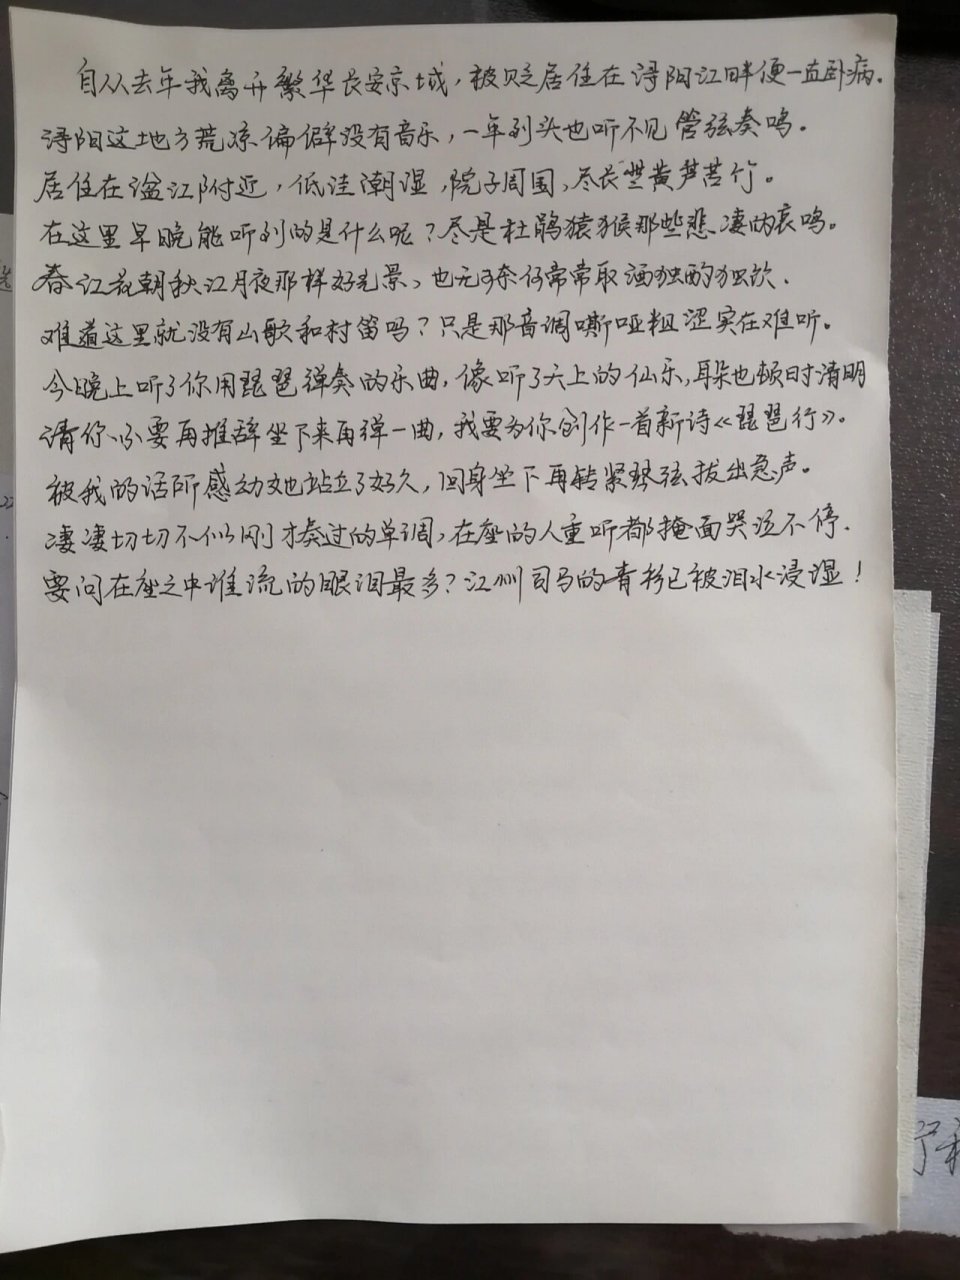 自从去年我离开繁华长安京城，被贬居住在浔阳江畔便一直卧病.
浔阳这地方荒凉偏僻没有音乐，一年到头也听不见管弦奏鸣。
居住在湓江附近，低洼潮湿，院子周围，尽长些黄芦苦竹。
在这里早晚能听到的是什么呢？尽是杜鹃猿猴那些悲凄的哀鸣。
春江花朝秋江月夜那样好光景、也无可奈何常常取酒独酌独饮.
难道这里就没有山歌和村笛吗？只是那音调嘶哑粗涩实在难听。
今晚上听了你用琵琶弹奏的乐曲，像听了天上的仙乐，耳朵也顿时清明
请你不要再推辞坐下来再弹一曲，我要为你创作一首新诗《琵琶行》。
被我的话所感动她站立了好久，回身坐下再转紧琴弦拔出急声。
凄凄切切不似刚才奏过的单调，在座的人重听都掩面哭泣不停.
要问在座之中谁流的眼泪最多？江州司马的青衫已被泪水浸湿！